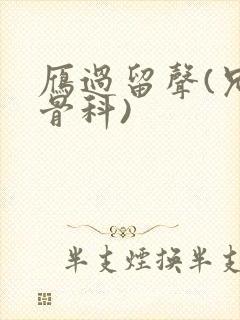 雁過留聲(兄
骨科)
半支煙換半支